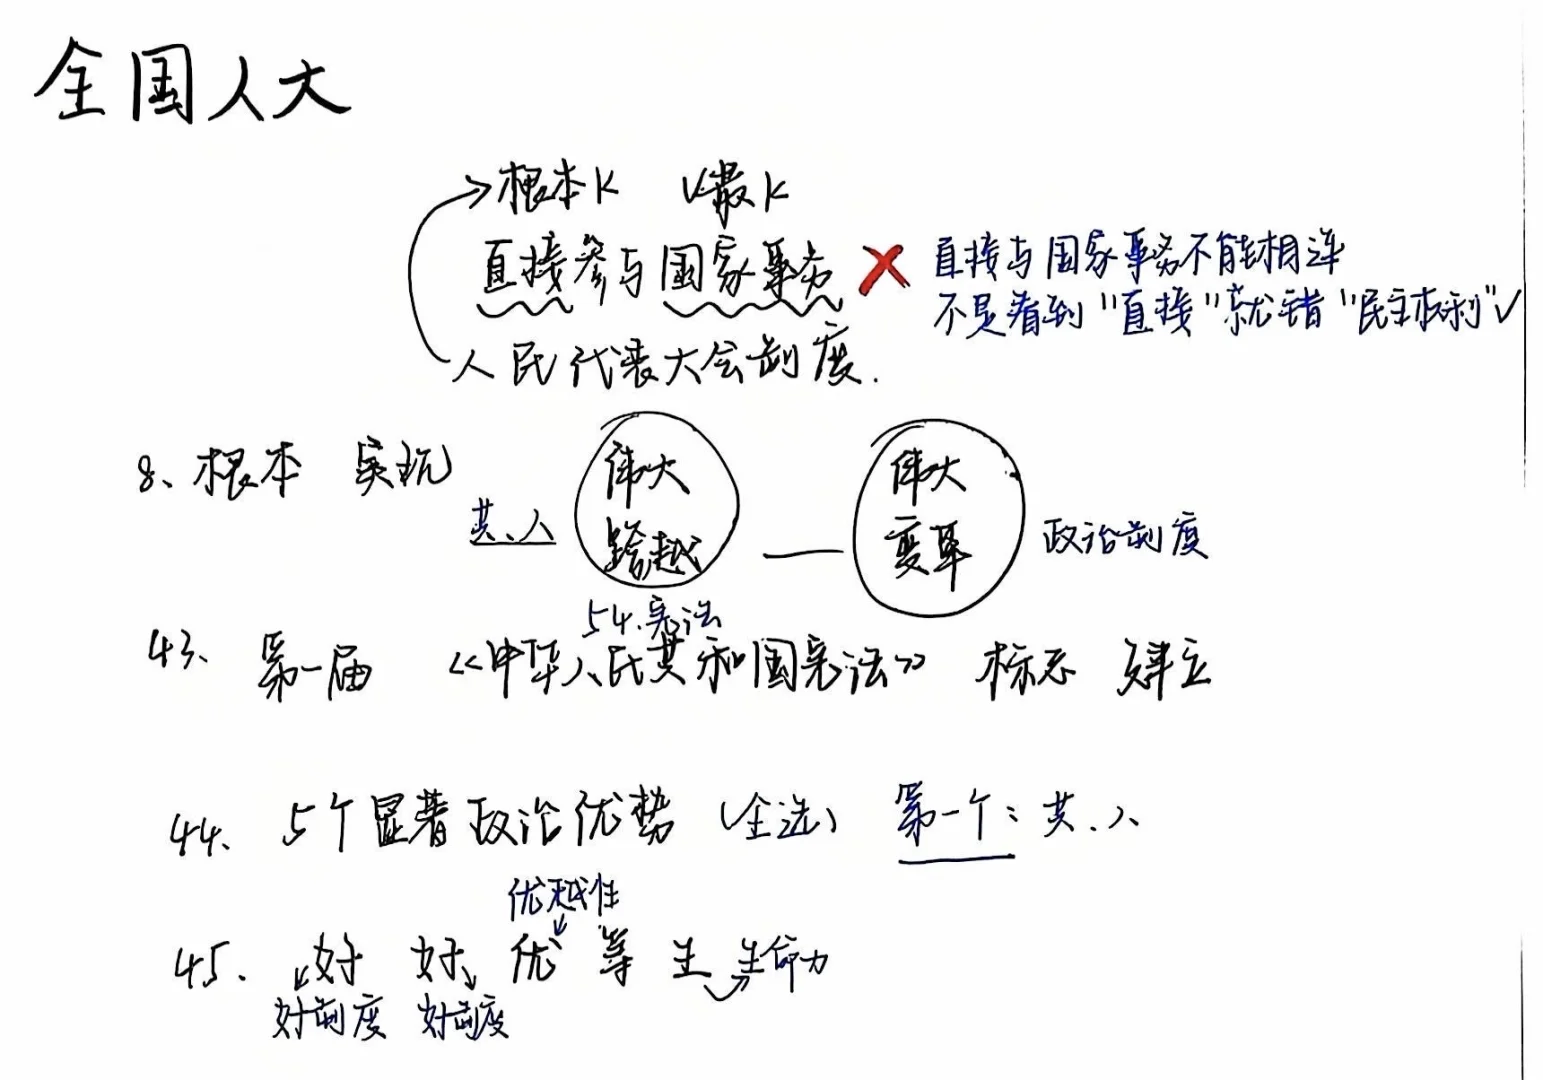 全国人大
→根本K ✓最K
直接参与国家事务 ✗ 直接与国家事务不能相连
不是看到"直接"就错 "民主权利"✓
人民代表大会制度.
8、根本 实现 共、人 伟大跨越 — 伟大变革 政治制度
54.宪法
43、第一届 《中华人民共和国宪法》 标志 建立
44、5个显著政治优势(全选) 第一个:共.人
优越性
45. 好 好 优 等 生 生命力
好制度 好制度